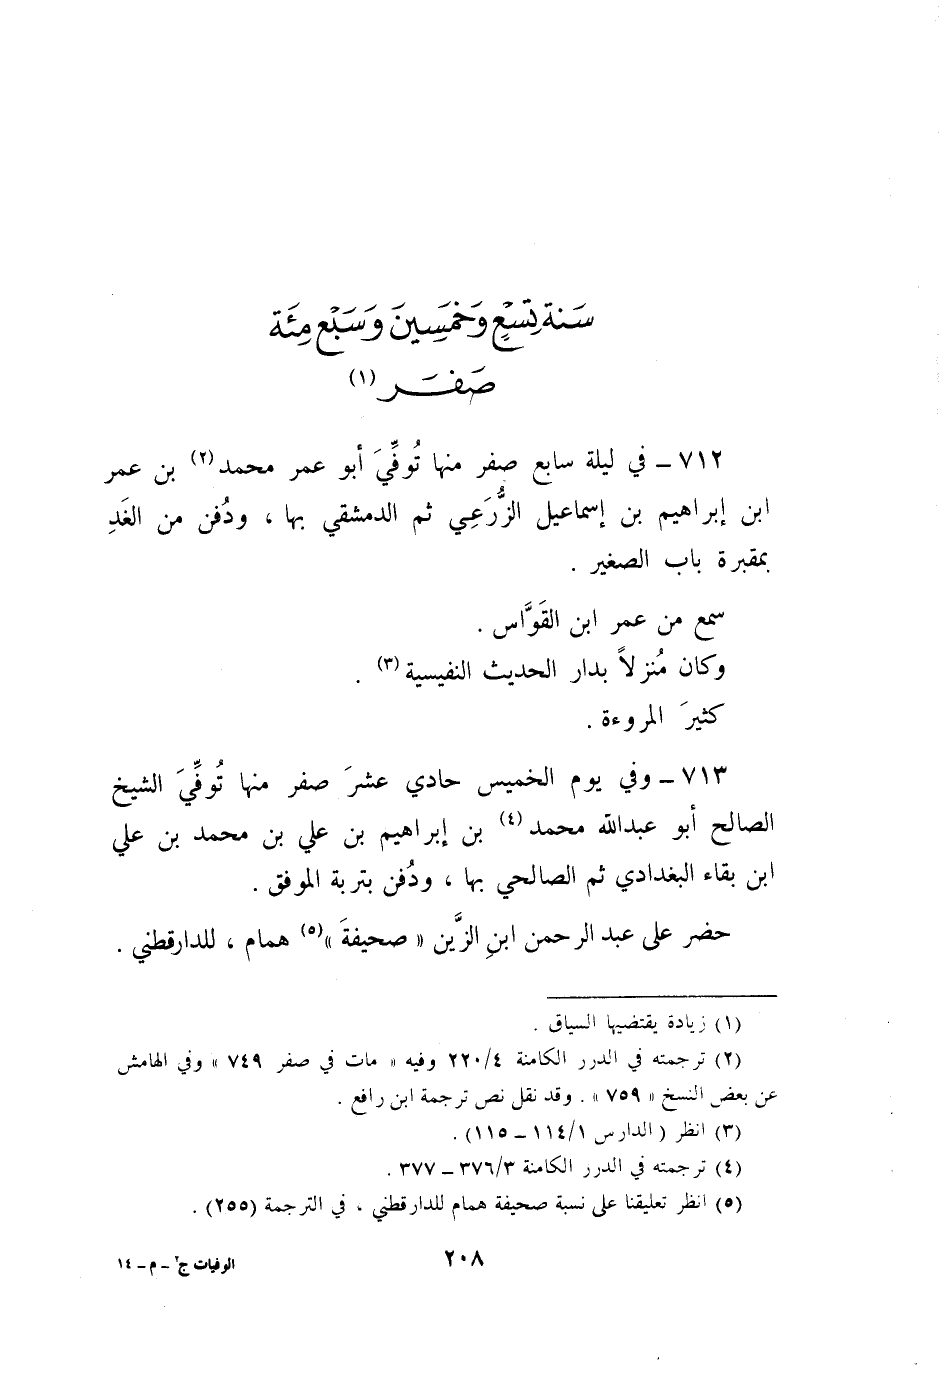 سَنة تِسْعٍ وَخَمْسِينَ وَسَبْعِ مِئَة
صَفَر (١)
٧١٢ – في ليلة سابع صفر منها تُوفِّيَ أبو عمر محمد(٢) بن عمر
ابن إبراهيم بن إسماعيل الزُّرَعِي ثم الدمشقي بها ، ودُفن من الغَدِ
بمقبرة باب الصغير .
سمع من عمر ابن القَوَّاس .
وكان مُنزلاً بدار الحديث النفيسية(٣) .
كثيرَ المروءة .
٧١٣ – وفي يوم الخميس حادي عشرَ صفر منها تُوفِّيَ الشيخ
الصالح أبو عبدالله محمد(٤) بن إبراهيم بن علي بن محمد بن علي
ابن بقاء البغدادي ثم الصالحي بها ، ودُفن بتربة الموفق .
حضر على عبد الرحمن ابنِ الزَّين « صحيفةَ »(٥) همام ، للدارقطني .
(١) زيادة يقتضيها السياق .
(٢) ترجمته في الدرر الكامنة ٢٢٠/٤ وفيه « مات في صفر ٧٤٩ » وفي الهامش
عن بعض النسخ « ٧٥٩ » . وقد نقل نص ترجمة ابن رافع .
(٣) انظر ( الدارس ١١٤/١ – ١١٥) .
(٤) ترجمته في الدرر الكامنة ٣٧٦/٣ – ٣٧٧ .
(٥) انظر تعليقنا على نسبة صحيفة همام للدارقطني ، في الترجمة (٢٥٥) .
٢٠٨
الوفيات ج٢ – م – ١٤